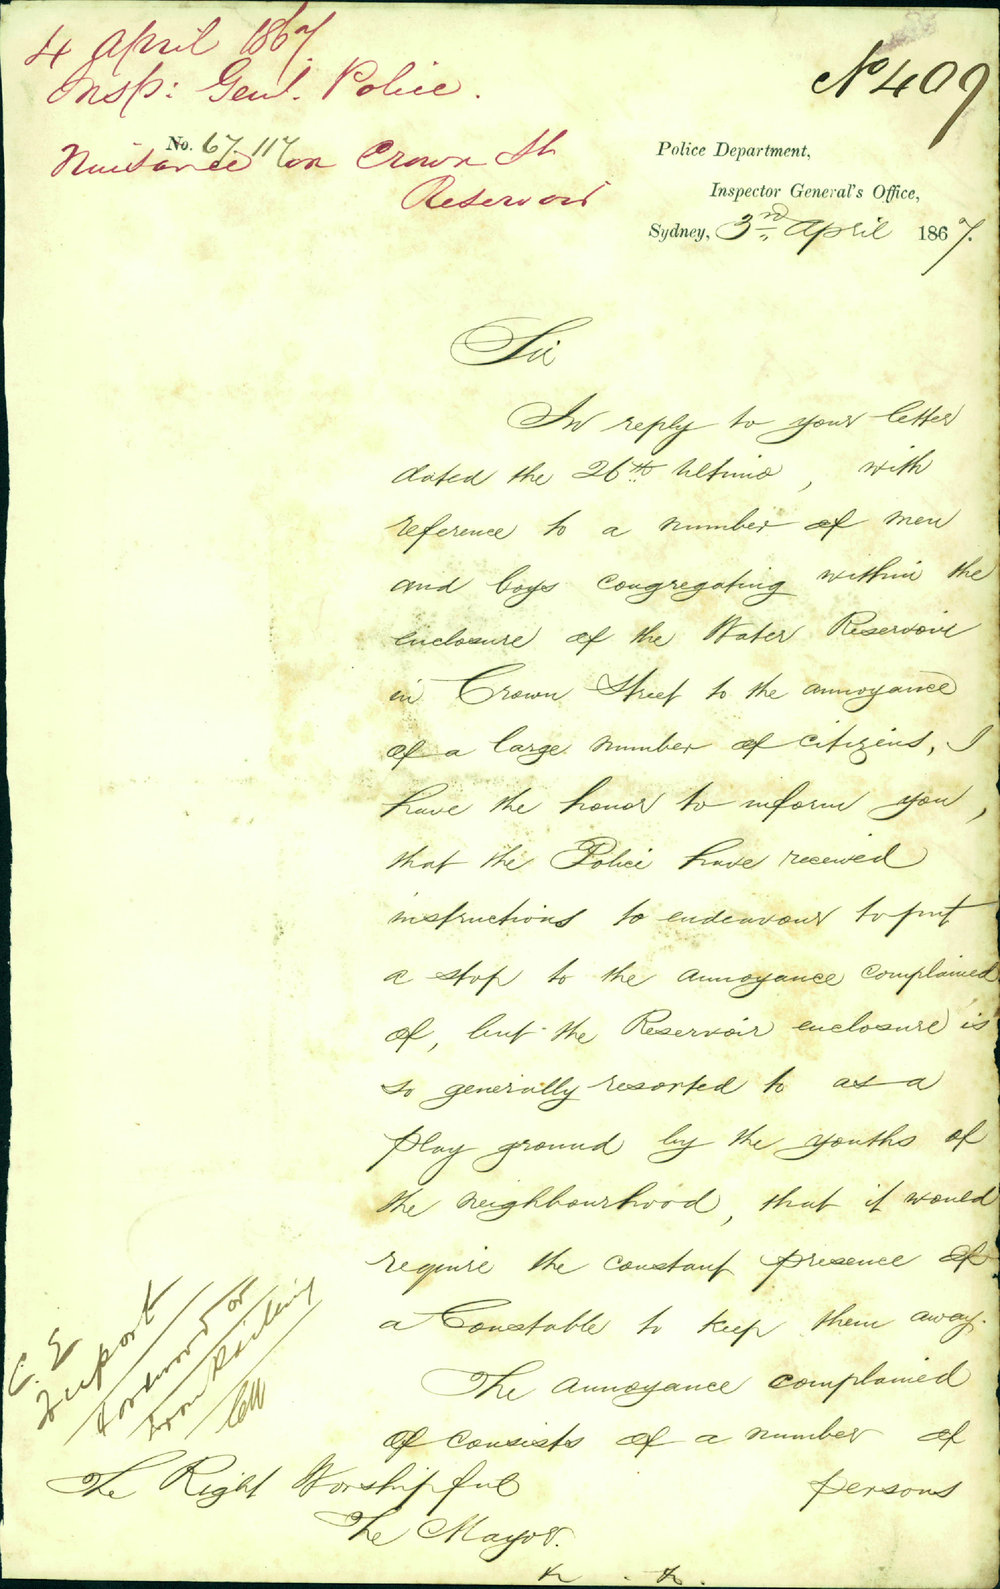 4 April 1867
Insp: Genl. Police.
No. 67/117
Nuisance on Crown St
Reservoir
No 409
Police Department,
Inspector General's Office,
Sydney, 3rd April 1867.
Sir
In reply to your letter
dated the 26th Ultimo, with
reference to a number of men
and boys congregating within the
enclosure of the Water Reservoir
in Crown Street to the annoyance
of a large number of citizens, I
have the honor to inform you,
that the Police have received
instructions to endeavour to put
a stop to the annoyance complained
of, but the Reservoir enclosure is
so generally resorted to as a
play ground by the youths of
the neighbourhood, that it would
require the constant presence of
a Constable to keep them away.
The annoyance complained
of consists of a number of
persons
C. E
report
hardwood or
Iron Railing
The Right Worshipful
The Mayor.